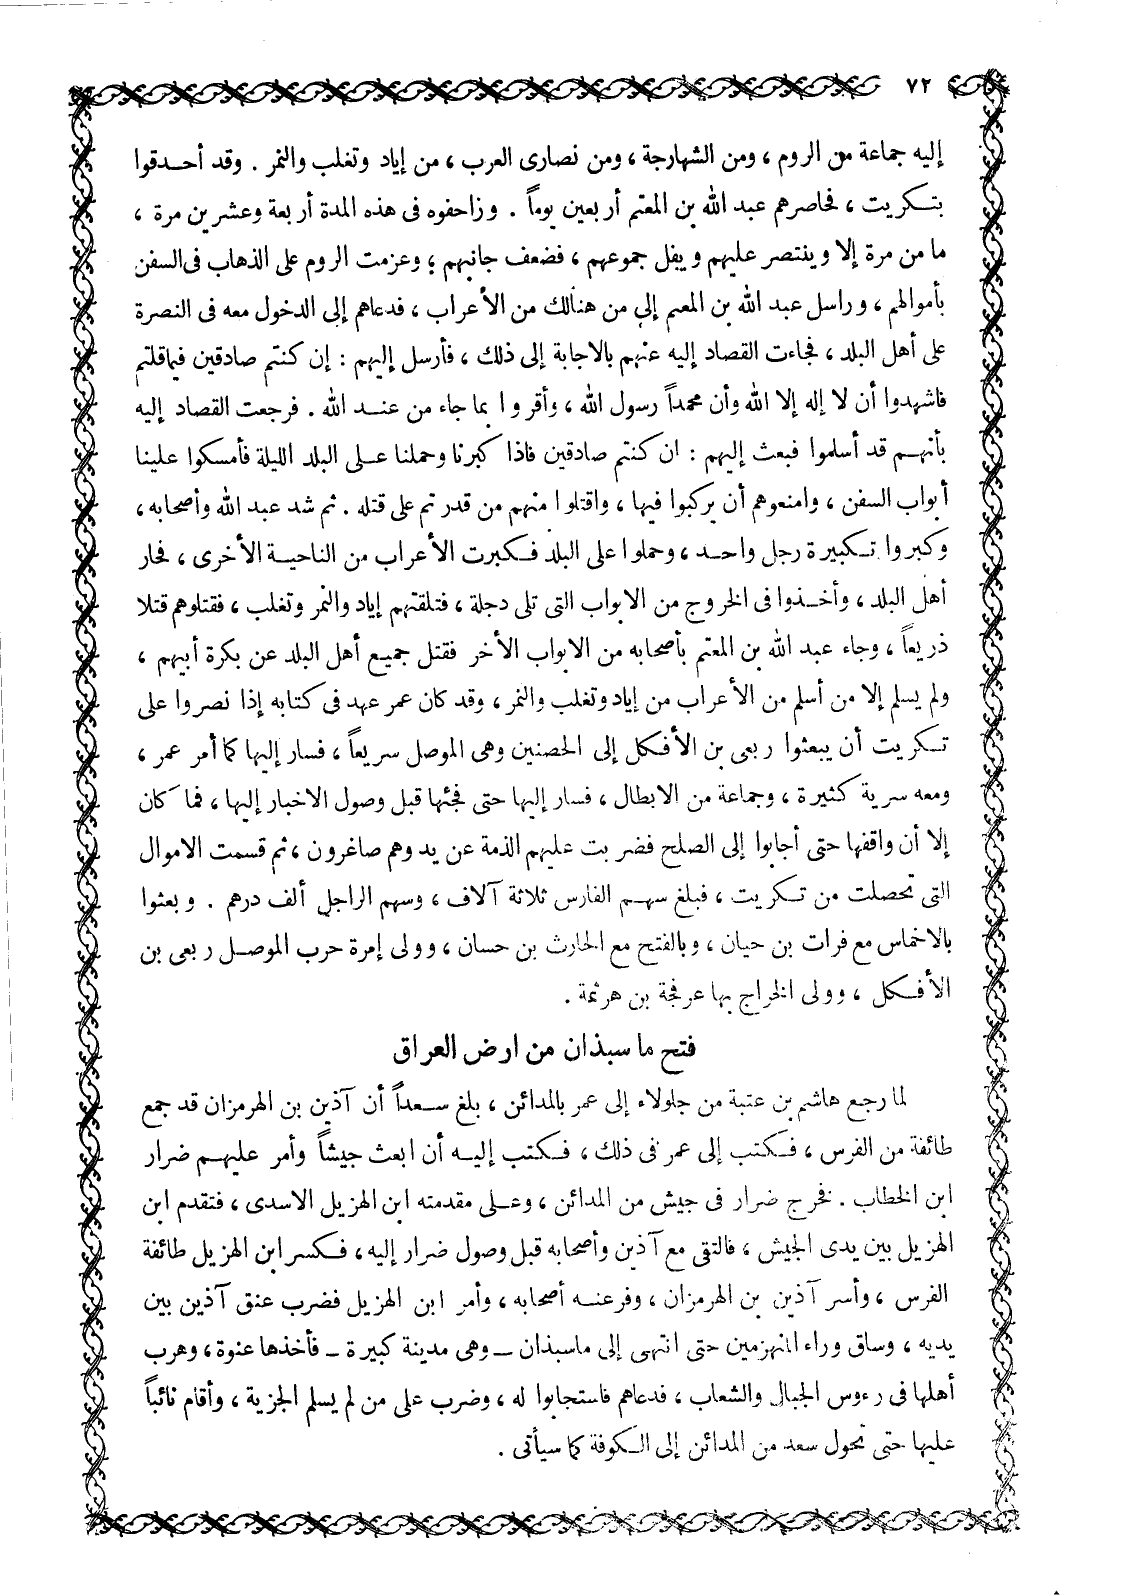 ٧٢
إليه جماعة من الروم ، ومن الشهارجة ، ومن نصارى العرب ، من إياد وتغلب والنمر . وقد أحدقوا
بتكريت ، فحاصرهم عبد الله بن المعتم أربعين يوماً . وزاحفوه فى هذه المدة أربعة وعشرين مرة ،
ما من مرة إلا وينتصر عليهم ويفل جموعهم ، فضعف جانبهم ؛ وعزمت الروم على الذهاب فى السفن
بأموالهم ، وراسل عبد الله بن المعتم إلى من هنالك من الأعراب ، فدعاهم إلى الدخول معه فى النصرة
على أهل البلد ، فجاءت القصاد إليه عنهم بالاجابة إلى ذلك ، فأرسل إليهم : إن كنتم صادقين فيما قلتم
فاشهدوا أن لا إله إلا الله وأن محمداً رسول الله ، وأقروا بما جاء من عند الله . فرجعت القصاد إليه
بأنهم قد أسلموا فبعث إليهم : ان كنتم صادقين فاذا كبرنا وحملنا على البلد الليلة فأمسكوا علينا
أبواب السفن ، وامنعوهم أن يركبوا فيها ، واقتلوا منهم من قدرتم على قتله . ثم شد عبد الله وأصحابه ،
وكبروا تكبيرة رجل واحد ، وحملوا على البلد فكبرت الأعراب من الناحية الأخرى ، فحار
أهل البلد ، وأخذوا فى الخروج من الابواب التى تلى دجلة ، فتلقتهم إياد والنمر وتغلب ، فقتلوهم قتلا
ذريعاً ، وجاء عبد الله بن المعتم بأصحابه من الابواب الأخر فقتل جميع أهل البلد عن بكرة أبيهم ،
ولم يسلم إلا من أسلم من الأعراب من إياد وتغلب والنمر ، وقد كان عمر عهد فى كتابه إذا نصروا على
تكريت أن يبعثوا ربعى بن الأفكل إلى الحصنين وهى الموصل سريعاً ، فسار إليها كما أمر عمر ،
ومعه سرية كثيرة ، وجماعة من الابطال ، فسار إليها حتى فجئها قبل وصول الاخبار إليها ، فما كان
إلا أن واقفها حتى أجابوا إلى الصلح فضربت عليهم الذمة عن يد وهم صاغرون ، ثم قسمت الاموال
التى تحصلت من تكريت ، فبلغ سهم الفارس ثلاثة آلاف ، وسهم الراجل ألف درهم . وبعثوا
بالاخماس مع فرات بن حيان ، وبالفتح مع الحارث بن حسان ، وولى إمرة حرب الموصل ربعى بن
الأفكل ، وولى الخراج بها عرفجة بن هرثمة .
فتح ماسبذان من ارض العراق
لما رجع هاشم بن عتبة من جلولاء إلى عمر بالمدائن ، بلغ سعداً أن آذين بن الهرمزان قد جمع
طائفة من الفرس ، فكتب إلى عمر فى ذلك ، فكتب إليه أن ابعث جيشاً وأمر عليهم ضرار
ابن الخطاب . فخرج ضرار فى جيش من المدائن ، وعلى مقدمته ابن الهزيل الاسدى ، فتقدم ابن
الهزيل بين يدى الجيش ، فالتقى مع آذين وأصحابه قبل وصول ضرار إليه ، فكسر ابن الهزيل طائفة
الفرس ، وأسر آذين بن الهرمزان ، وفر عنه أصحابه ، وأمر ابن الهزيل فضرب عنق آذين بين
يديه ، وساق وراء المنهزمين حتى انتهى إلى ماسبذان ــ وهى مدينة كبيرة ــ فأخذها عنوة ، وهرب
أهلها فى رءوس الجبال والشعاب ، فدعاهم فاستجابوا له ، وضرب على من لم يسلم الجزية ، وأقام نائباً
عليها حتى تحول سعد من المدائن إلى الكوفة كما سيأتى .